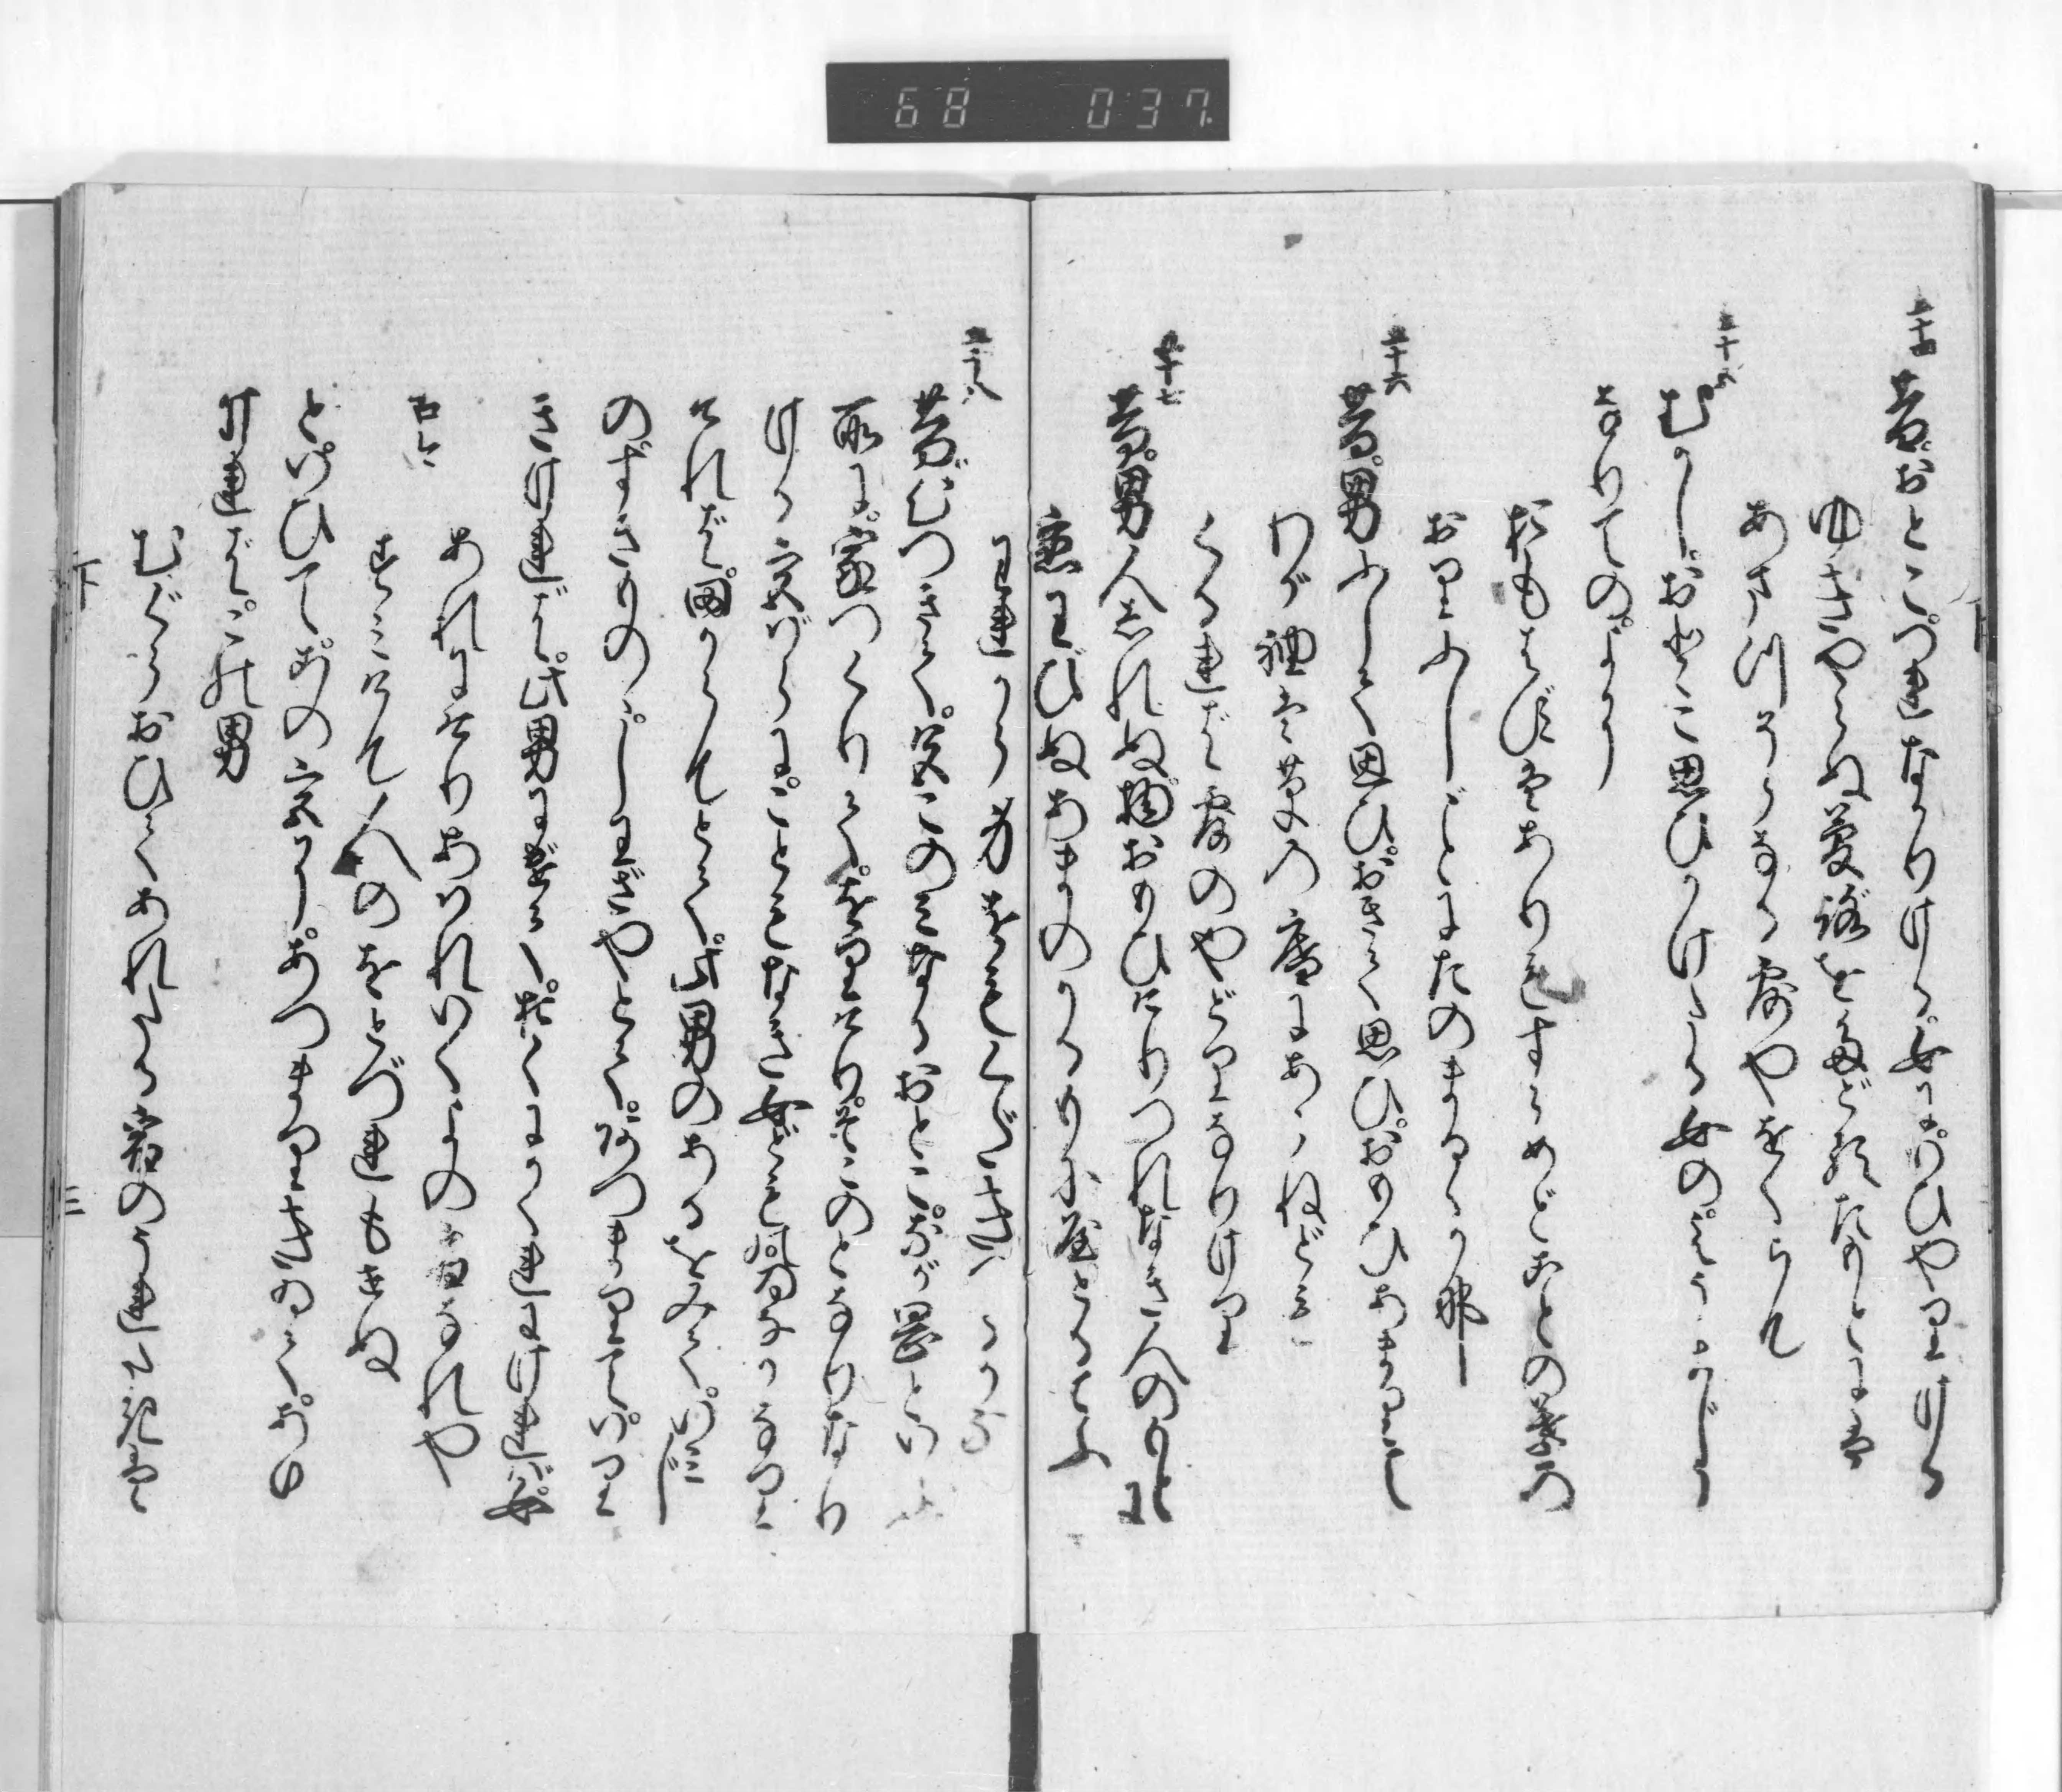 五十四
昔。おとこ。つれなかりける。女に。いひやりける
ゆきやらぬ夢路をたどるたもとには
あまつそらなる露やをくらん
五十五
むかし。おとこ思ひかけたる女の。えうまじう
なりての。よに
おもはずはありもすらめどことの葉の
おりふしごとにたのまるゝ哉
五十六
昔。男ふして思ひ。おきて思ひ。おもひあまりて
わが袖は草の庵にあらねども
くるれば露のやどりなりけり
五十七
昔。男人しれぬ物おもひけり。つれなき人のもとに
恋わびぬあまのかるもにやどるてふ
われから身をもくだきつるかな
五十八
昔。心つきて。色このみなるおとこ。長岡といふ
所に。家つくりて。をりけり。そこのとなりなり
ける宮ばらに。こともなき女どもの。ゐなかなり
ければ。田からんとて。此男のあるをみて。いみじ
のすきものゝ。しわざやとて。あつまりて。いり
きければ。此男にげて。おくにかくれにければ。女
あれにけりあはれいくよの宿なれや
古今
すみけん人のをとづれもせぬ
といひて。この宮に。あつまりきゐて。あり
ければ。この男
むぐらおひてあれたる宿のうれたきは
下
三
68 037